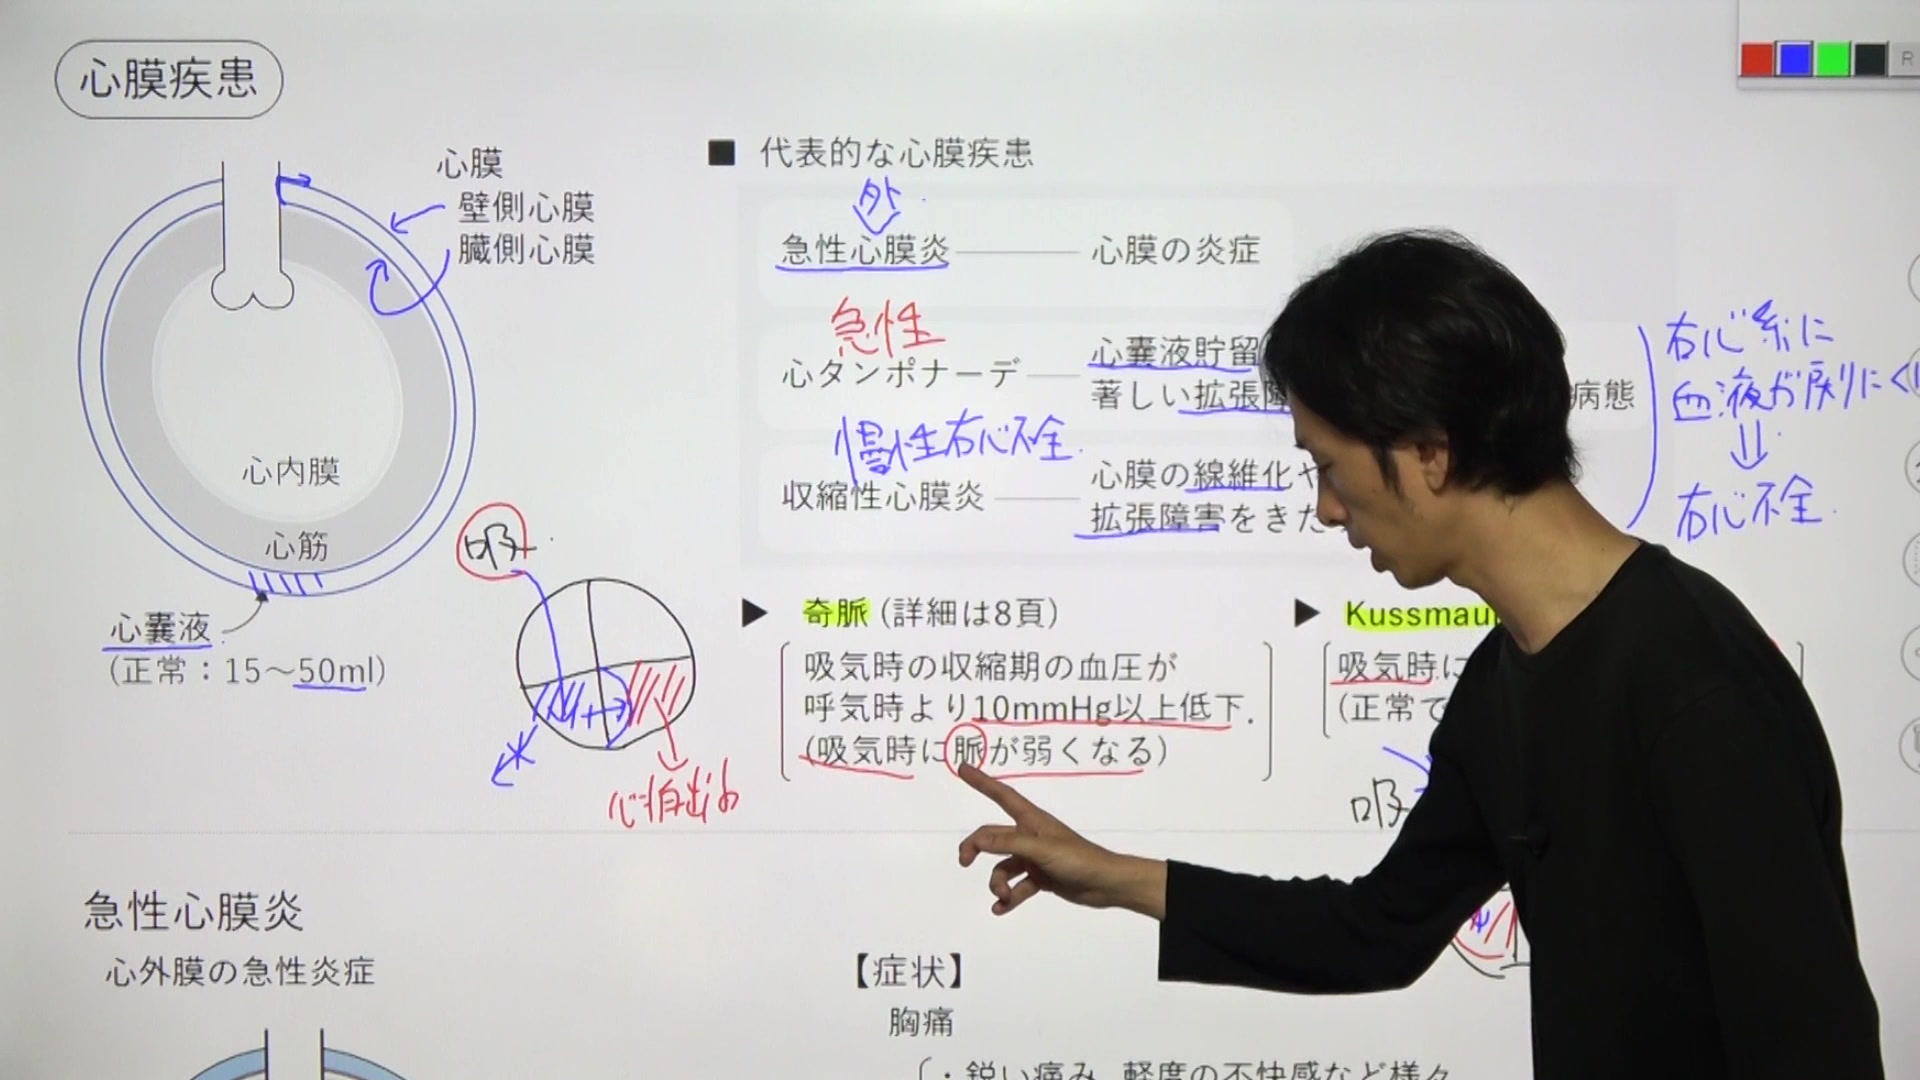 心膜疾患
心膜
壁側心膜
臓側心膜
心内膜
心筋
心嚢液
(正常：15～50ml)
吸
心拍出
■ 代表的な心膜疾患
外
急性心膜炎 心膜の炎症
急性
心タンポナーデ 心嚢液貯留
著しい拡張障
病態
慢性右心不全
収縮性心膜炎 心膜の線維化や
拡張障害をきた
右心系に
血液が戻りにく
右心不全
▶ 奇脈 (詳細は8頁)
吸気時の収縮期の血圧が
呼気時より10mmHg以上低下.
(吸気時に脈が弱くなる)
▶ Kussmau
吸気時に
(正常で
吸
急性心膜炎
心外膜の急性炎症
【症状】
胸痛
・鋭い痛み, 軽度の不快感など様々
R